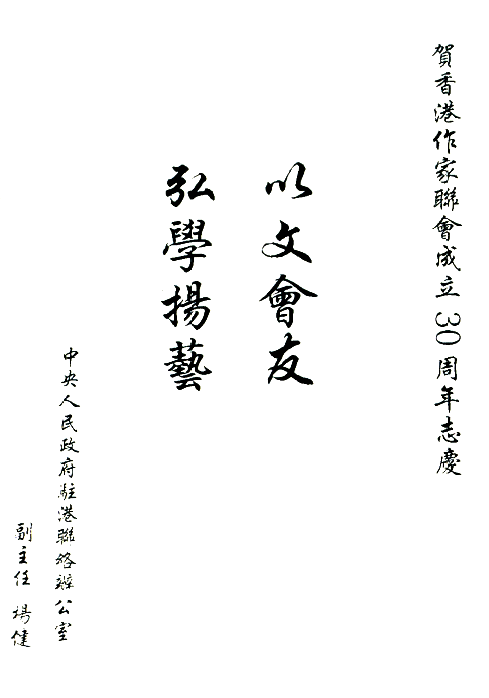 賀香港作家聯會成立30周年志慶
以文會友
弘學揚藝
中央人民政府駐港聯絡辦公室
副主任 楊健